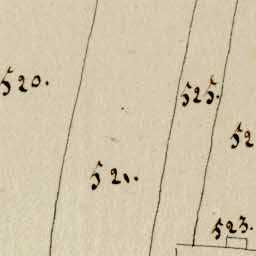 520.
525.
521.
52
523.